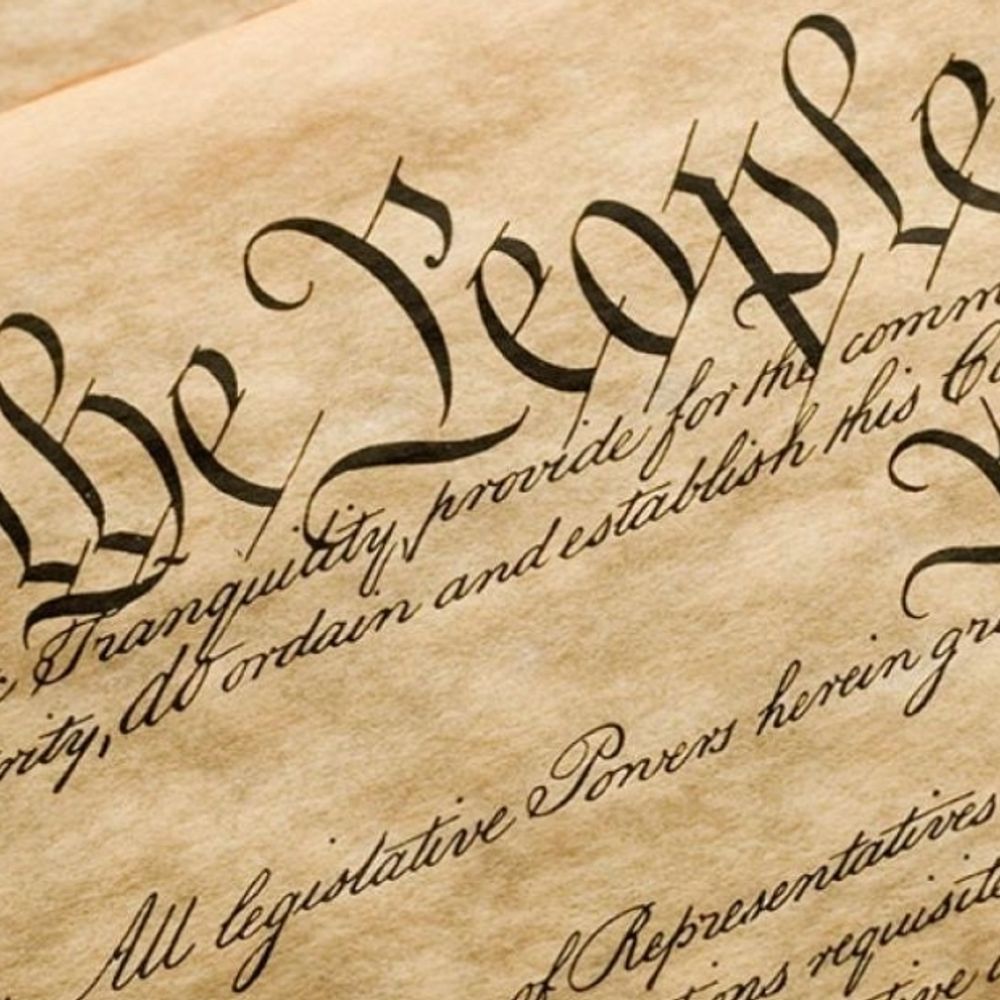 he People
c Tranquility, provide for the comm
rity, do ordain and establish this Co
All legislative Powers herein gr
of Representatives
ons requisite